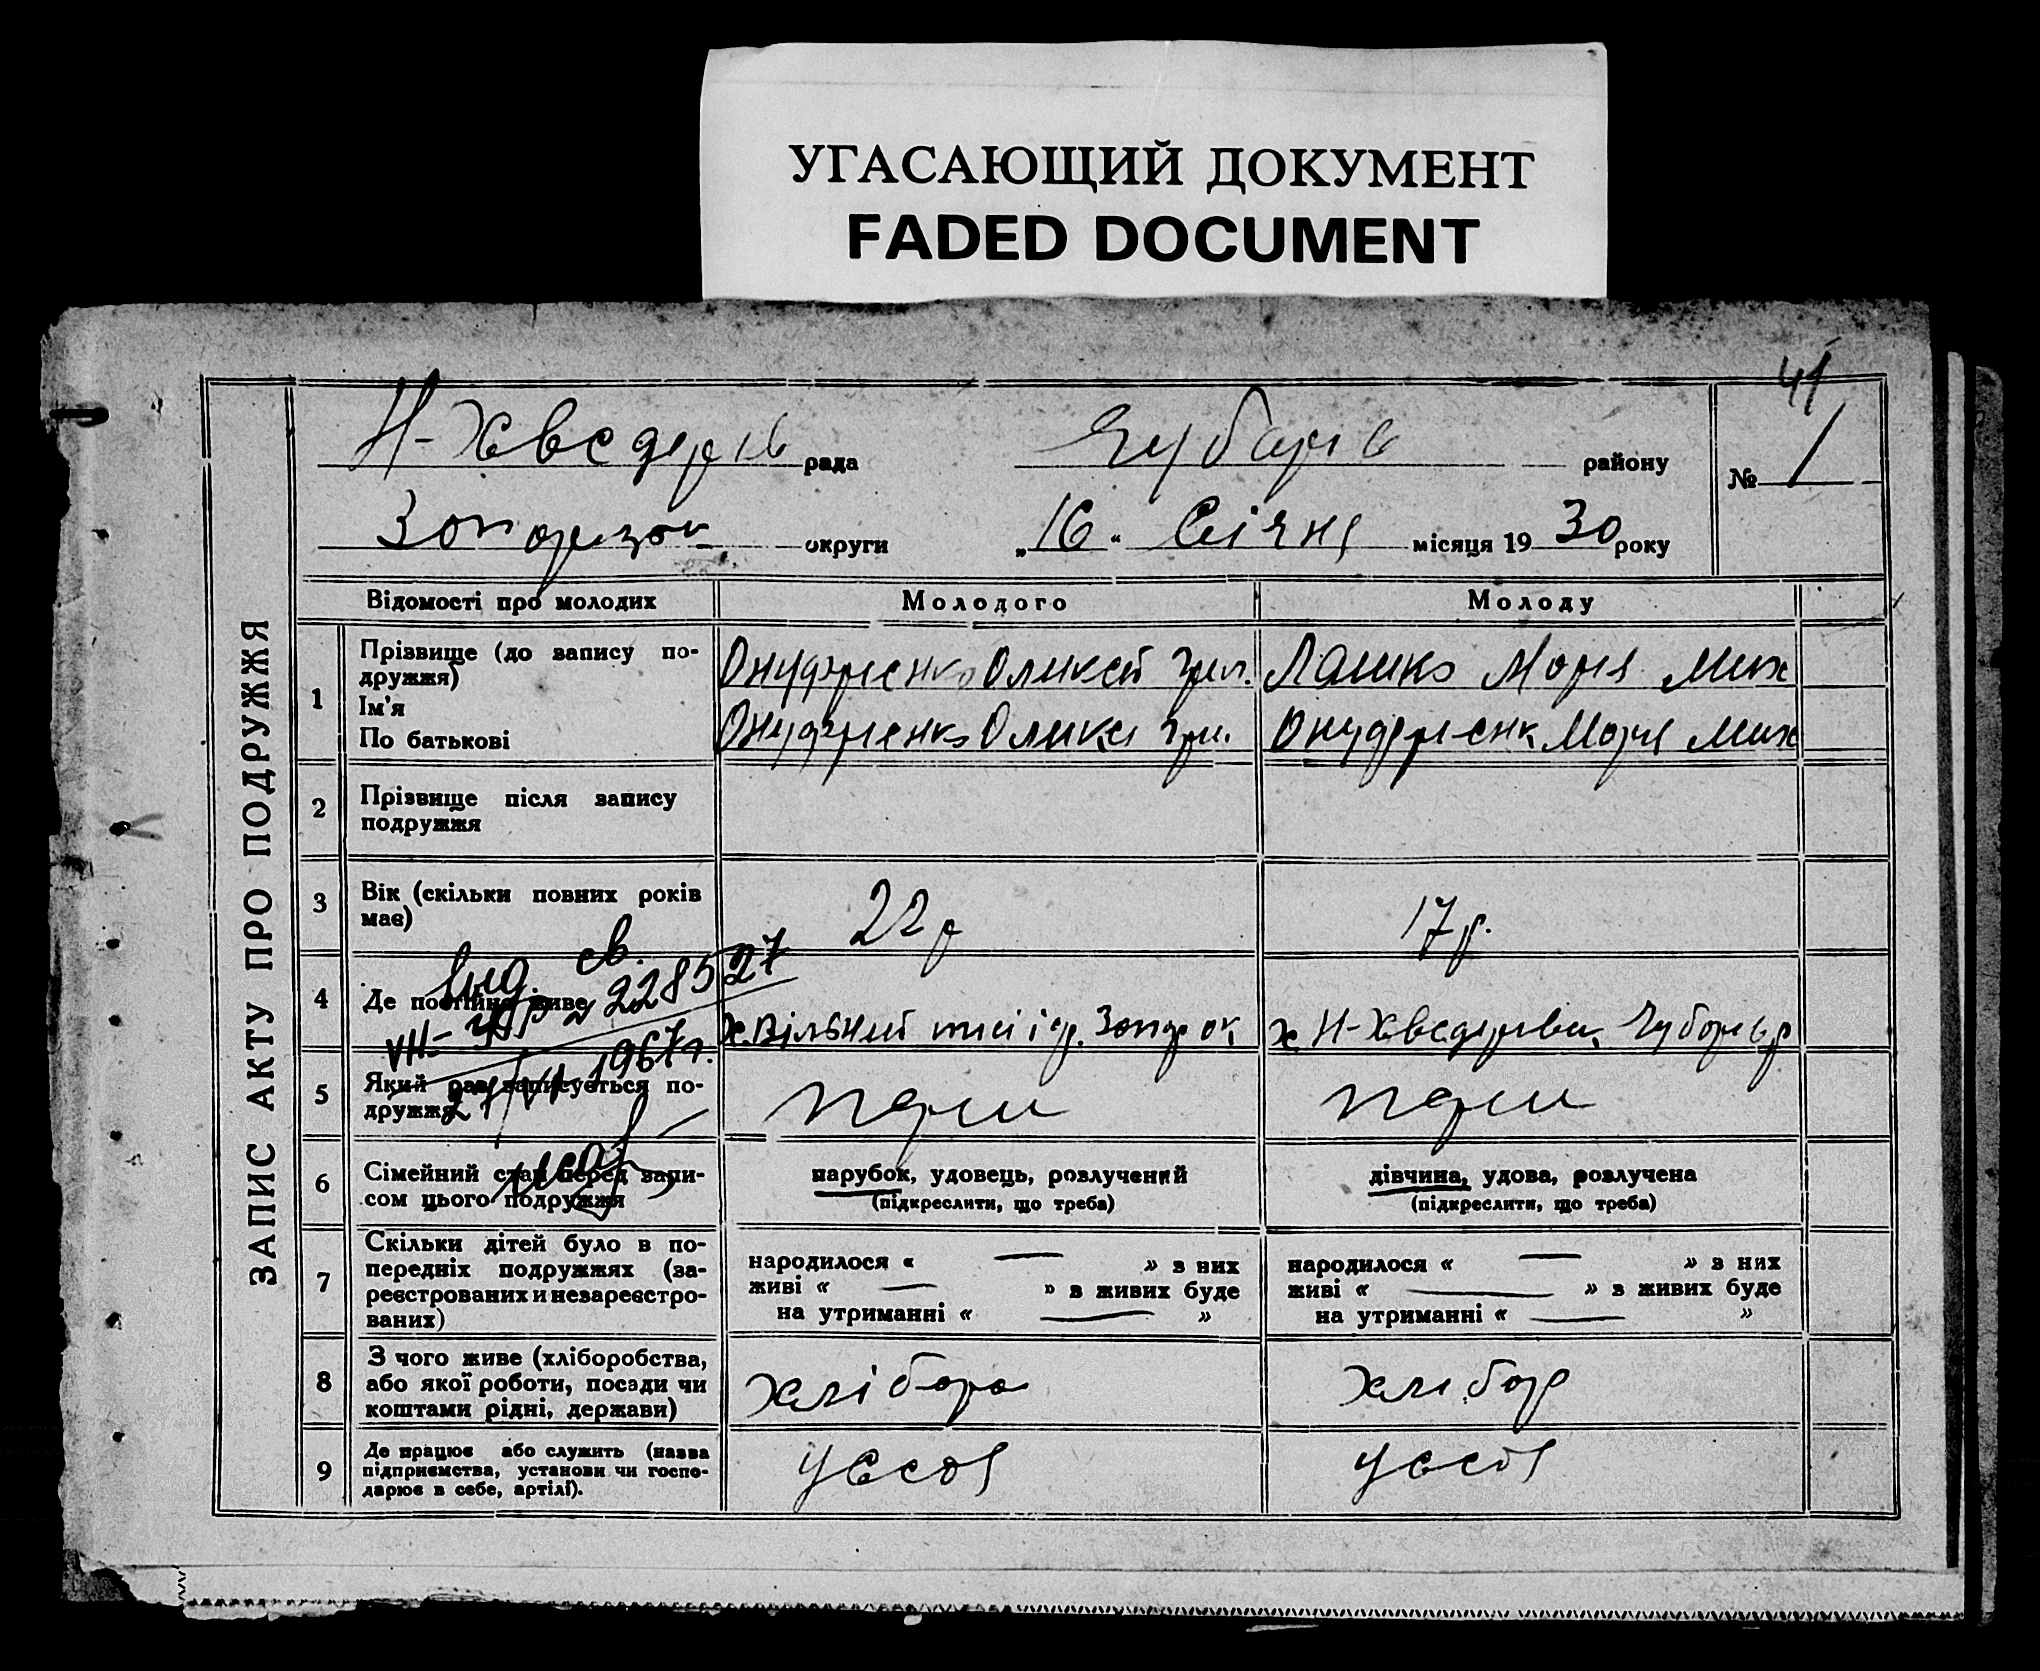 УГАСАЮЩИЙ ДОКУМЕНТ
FADED DOCUMENT
41
ЗАПИС АКТУ ПРО ПОДРУЖЖЯ
Н-Хведорів рада Чубарів району № 1
Запоріз ок округи „16“ Січня місяця 1930 року
Відомості про молодих Молодого Молоду
1 Прізвище (до запису по-
дружжя)
Ім'я
По батькові
Онуфрієнко Олексей Гри. Лашко Марія Мих
Онуфрієнко Олексі Гри. Онуфрієнк Марія Мих
2 Прізвище після запису
подружжя
3 Вік (скільки повних років
має)
22 р 17 р.
4 Де постійно живе
х. Вільний Запор ок х Н-Хведорівка Чубарів р
Выд. св.
VII-ЯР № 228527
1967 г.
5 Який раз записується по-
дружжя
перш перш
6 Сімейний стан перед запи-
сом цього подружжя
парубок, удовець, розлучений
(підкреслити, що треба)
дівчина, удова, розлучена
(підкреслити, що треба)
7 Скільки дітей було в по-
передніх подружжях (за-
реєстрованих и незареєстро-
ваних)
народилося « — » з них
живі « — » в живих буде
на утриманні « — »
народилося « — » з них
живі « — » в живих буде
на утриманні « — »
8 З чого живе (хліборобства,
або якої роботи, посади чи
коштами рідні, держави)
хлібора хлібор
9 Де працює або служить (назва
підприємства, установи чи госпо-
дарює в себе, артілі).
У себя У себя